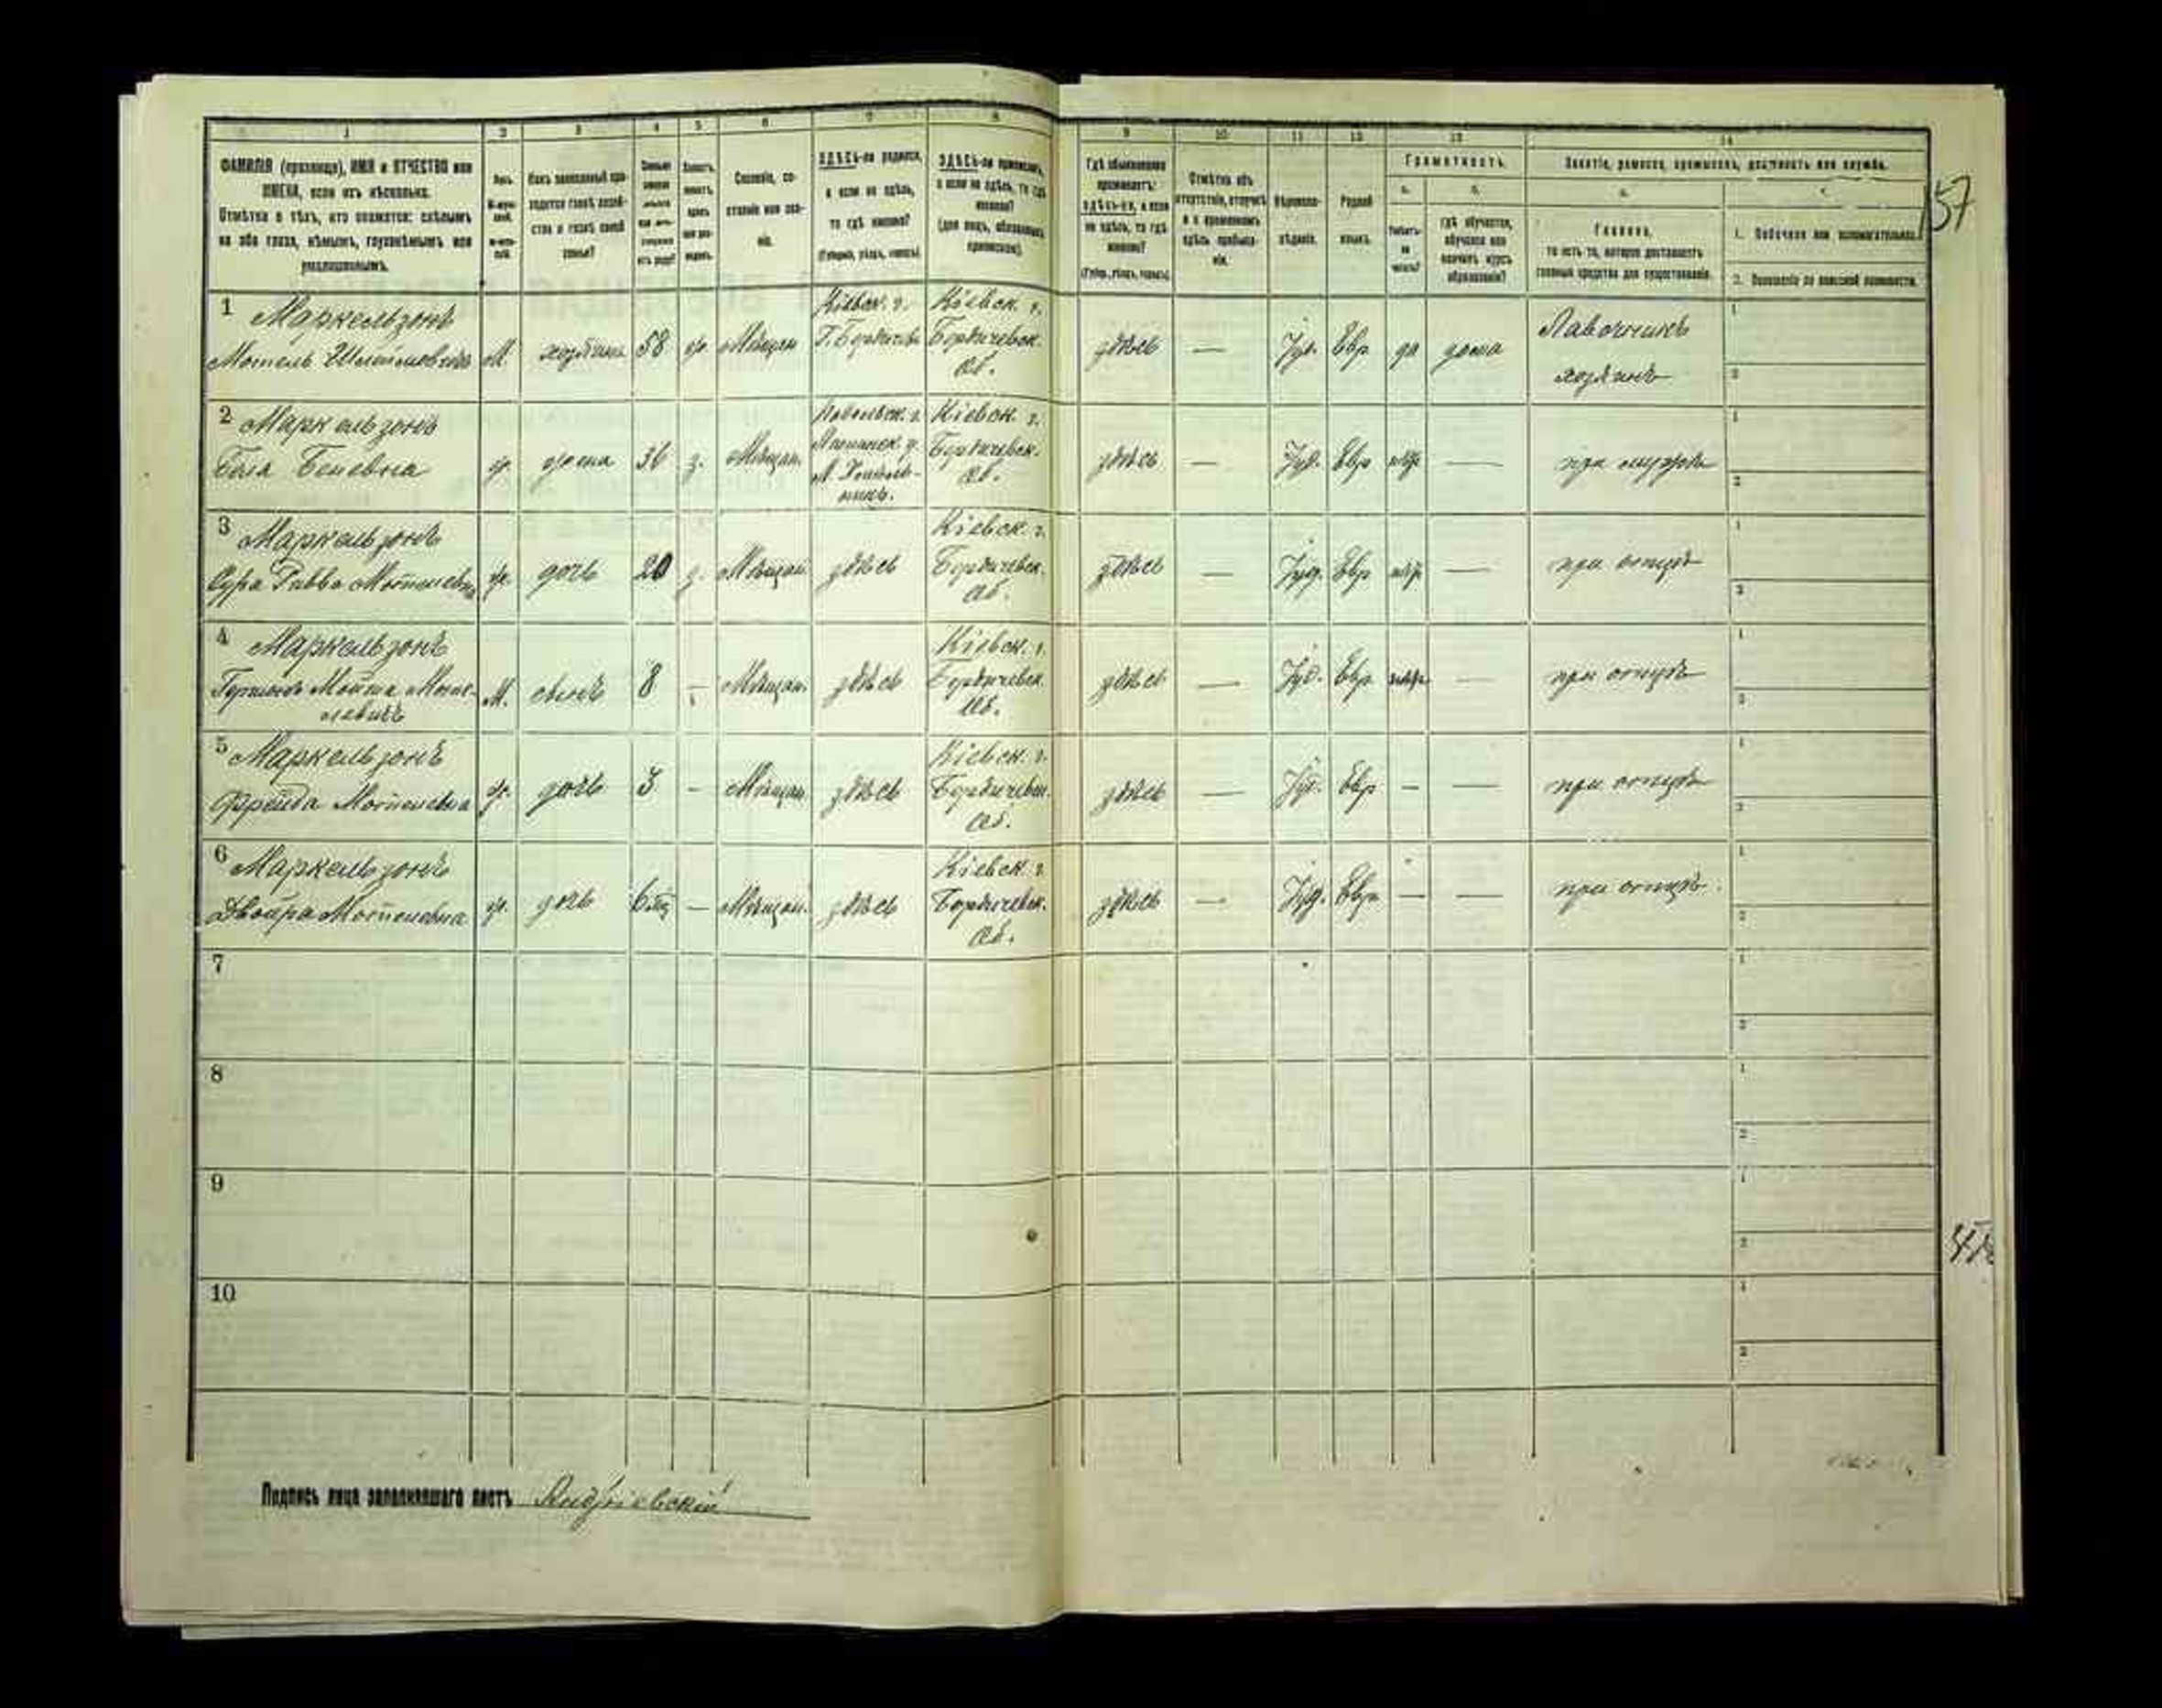 1 2 3 4 5 6 7 8 9 10 11 12 13 14
ФАМИЛІЯ (прозвище), ИМЯ и ОТЧЕСТВО или
ИМЕНА, если ихъ нѣсколько.
Отмѣтка о тѣхъ, кто окажется: слѣпымъ
на оба глаза, нѣмымъ, глухонѣмымъ или
умалишеннымъ.
Полъ.
Какъ записанный при-
ходится главѣ хозяй-
ства и главѣ своей
семьи?
Сословіе, со-
стояніе или зва-
ніе.
ЗДѢСЬ-ли родился,
а если не здѣсь,
то гдѣ именно?
(Губернія, уѣздъ, городъ)
ЗДѢСЬ-ли приписанъ,
а если не здѣсь, то гдѣ
именно?
(для лицъ, обязанныхъ
припиской)
Гдѣ обыкновенно
проживаетъ:
здѣсь-ли, а если
не здѣсь, то гдѣ
именно?
(Губер., уѣздъ, городъ)
Отмѣтка объ
отсутствіи, отлучкѣ
и о временномъ
здѣсь пребыва-
ніи.
Вѣроиспо-
вѣданіе.
Родной
языкъ.
Грамотность.
а.
Умѣетъ-
ли
читать?
б.
гдѣ обучается,
обучался или
кончилъ курсъ
образованія?
Занятіе, ремесло, промыселъ, должность или служба.
а.
Главное,
то есть то, которое доставляетъ
главныя средства для существованія.
1. Побочное или вспомогательное.
2. Положеніе по воинской повинности.
157
1 Маркельзонъ
Мотель
М. хозяинъ 58 Мѣщан.
Кіевск. г.
Г. Бердичевъ
Кіевск. г.
Бердичевск.
об.
здѣсь — Іуд. Евр. да дома
Лавочникъ
хозяинъ
1
2
2 Маркельзонъ
ж. жена 36 з. Мѣщан.
Кіевск. г.
Бердичевск.
об.
здѣсь — Іуд. Евр. нѣтъ — при мужѣ
1
2
3 Маркельзонъ
Сура Ривва Мотелевна
ж. дочь 20 Мѣщан. здѣсь
Кіевск. г.
Бердичевск.
об.
здѣсь — Іуд. Евр. нѣтъ — при отцѣ
1
2
4 Маркельзонъ
Мотe-
левичъ
М. сынъ 8 — Мѣщан. здѣсь
Кіевск. г.
Бердичевск.
об.
здѣсь — Іуд. Евр. нѣтъ — при отцѣ
1
2
5 Маркельзонъ
Фрейда Мотелевна
ж. дочь 3 — Мѣщан. здѣсь
Кіевск. г.
Бердичевск.
об.
здѣсь — Іуд. Евр. — — при отцѣ
1
2
6 Маркельзонъ
Двойра Мотелевна
ж. дочь — Мѣщан. здѣсь
Кіевск. г.
Бердичевск.
об.
здѣсь — Іуд. Евр. — — при отцѣ.
1
2
7
1
2
8
1
2
9
1
2
10
1
2
Подпись лица заполнявшаго листъ Андріевскій